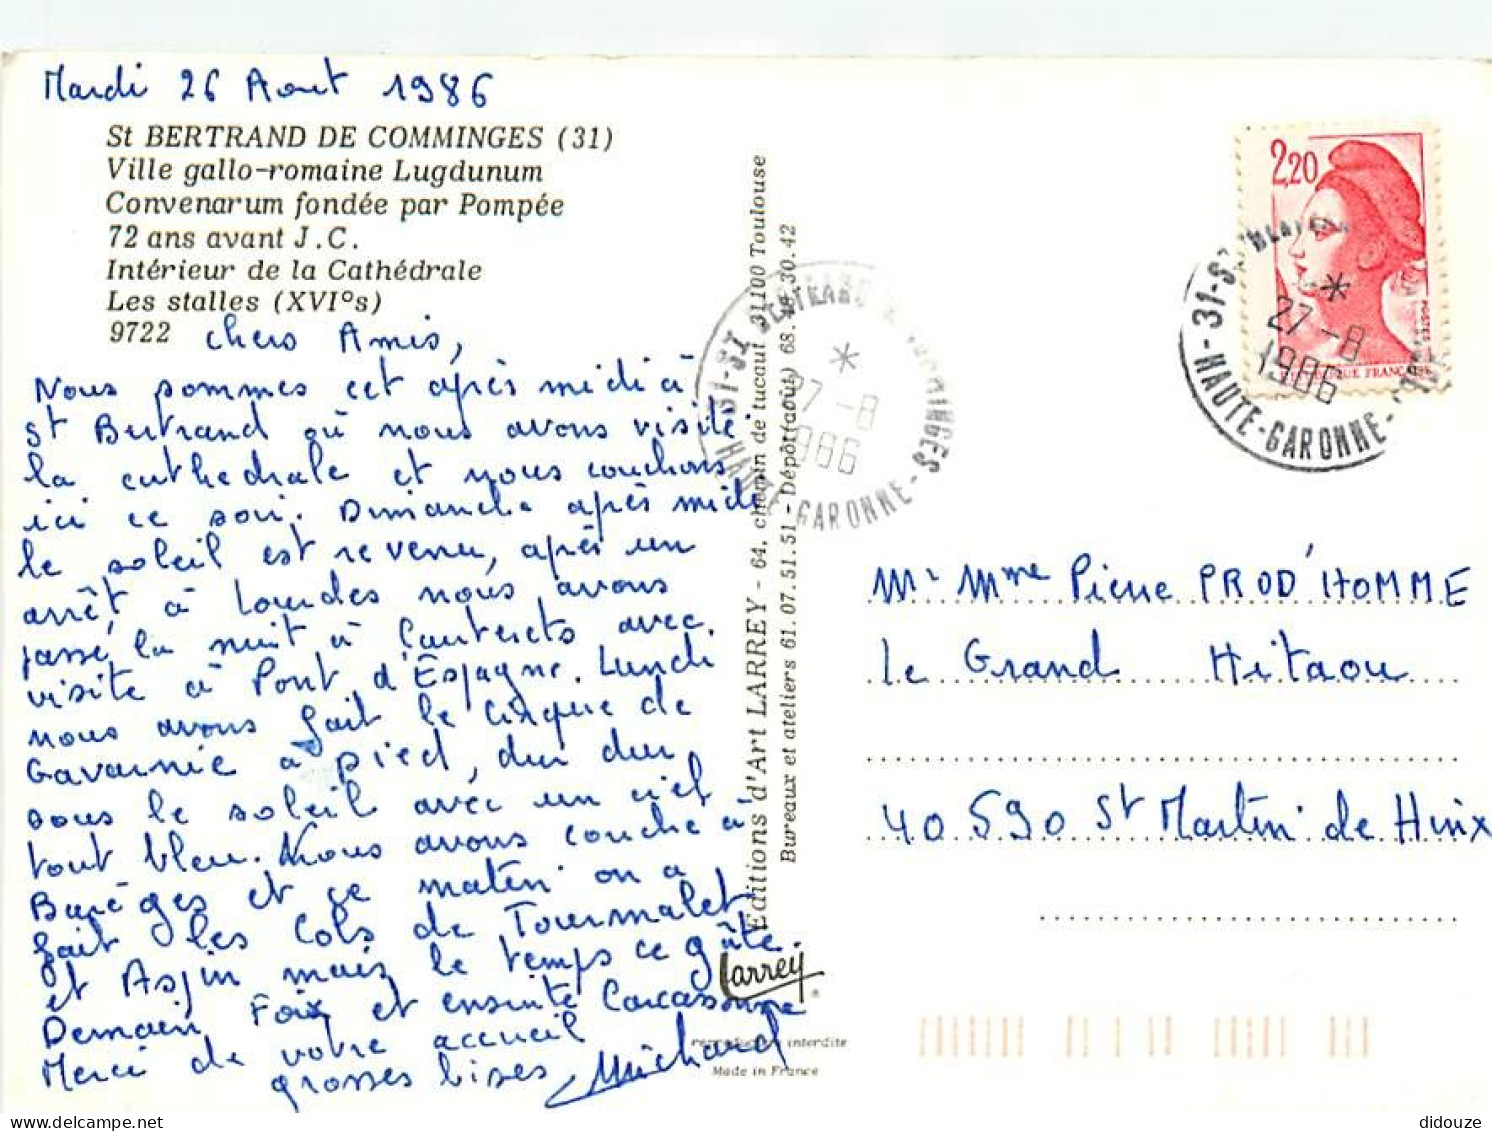 Mardi 26 Aout 1986
St BERTRAND DE COMMINGES (31)
Ville gallo-romaine Lugdunum
Convenarum fondée par Pompée
72 ans avant J.C.
Intérieur de la Cathédrale
Les stalles (XVI°s)
9722
chers Amis,
Nous sommes cet après midi à
St Bertrand où nous avons visité
la cathedrale et nous couchons
ici ce soir. Dimanche après midi
le soleil est revenu, après un
arrêt à Lourdes nous avons
passé la nuit à Cauterets avec
visite à Pont d'Espagne. Lundi
nous avons fait le Cirque de
Gavarnie à pied, dur dur
sous le soleil avec un ciel
tout bleu. Nous avons couché à
Barèges et ce matin on a
fait les Cols de Tourmalet
et Aspin mais le temps ce gâte.
Demain Foix et ensuite Carcassonne
Merci de votre accueil
grosses bises Michard
Editions d'Art LARREY - 64, chemin de tucaut 31100 Toulouse
Bureaux et ateliers 61.07.51.51 - Dépôt (août) 68.48.30.42
Larrey
reproduction interdite
Made in France
31-ST BERTRAND DE COMMINGES
*
27-8
1986
HAUTE-GARONNE
2,20
POSTES
REPUBLIQUE FRANÇAISE
31-ST
*
27-8
1986
HAUTE-GARONNE
Mr Mme Pierre PROD'HOMME
le Grand Hitaou
40 590 St Martin de Hinx
didouze